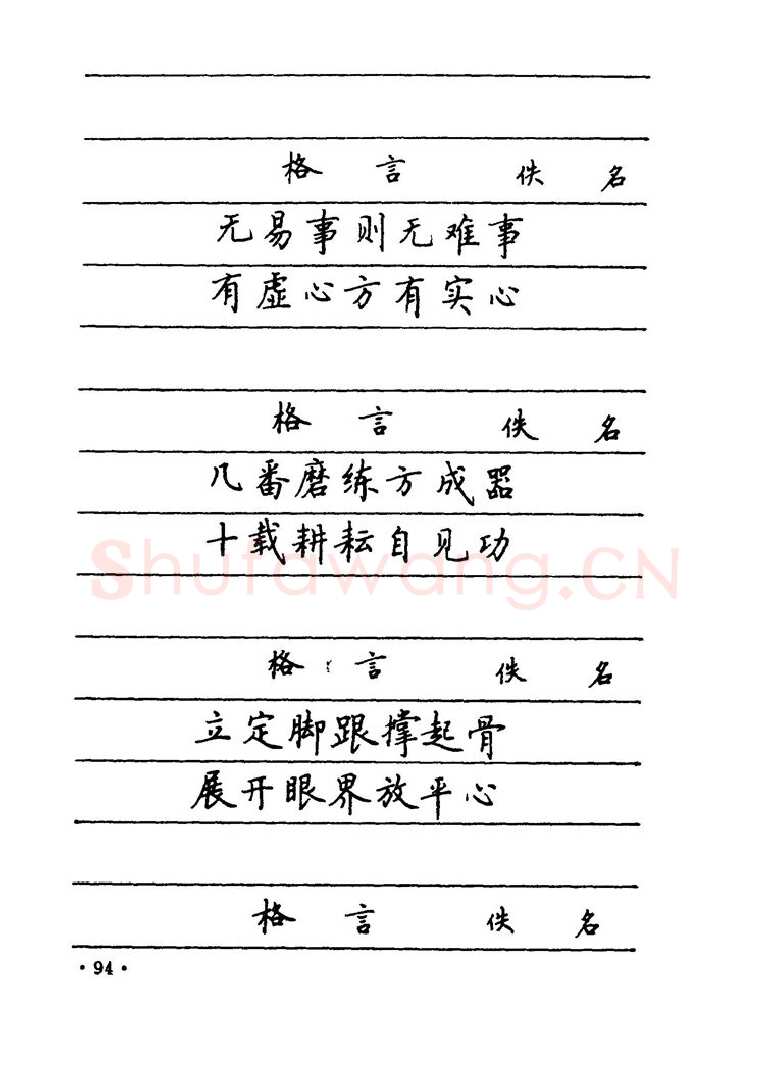 格言 佚名
无易事则无难事
有虚心方有实心
格言 佚名
几番磨练方成器
十载耕耘自见功
Shufawang.CN
格言 佚名
立定脚跟撑起骨
展开眼界放平心
格言 佚名
·94·